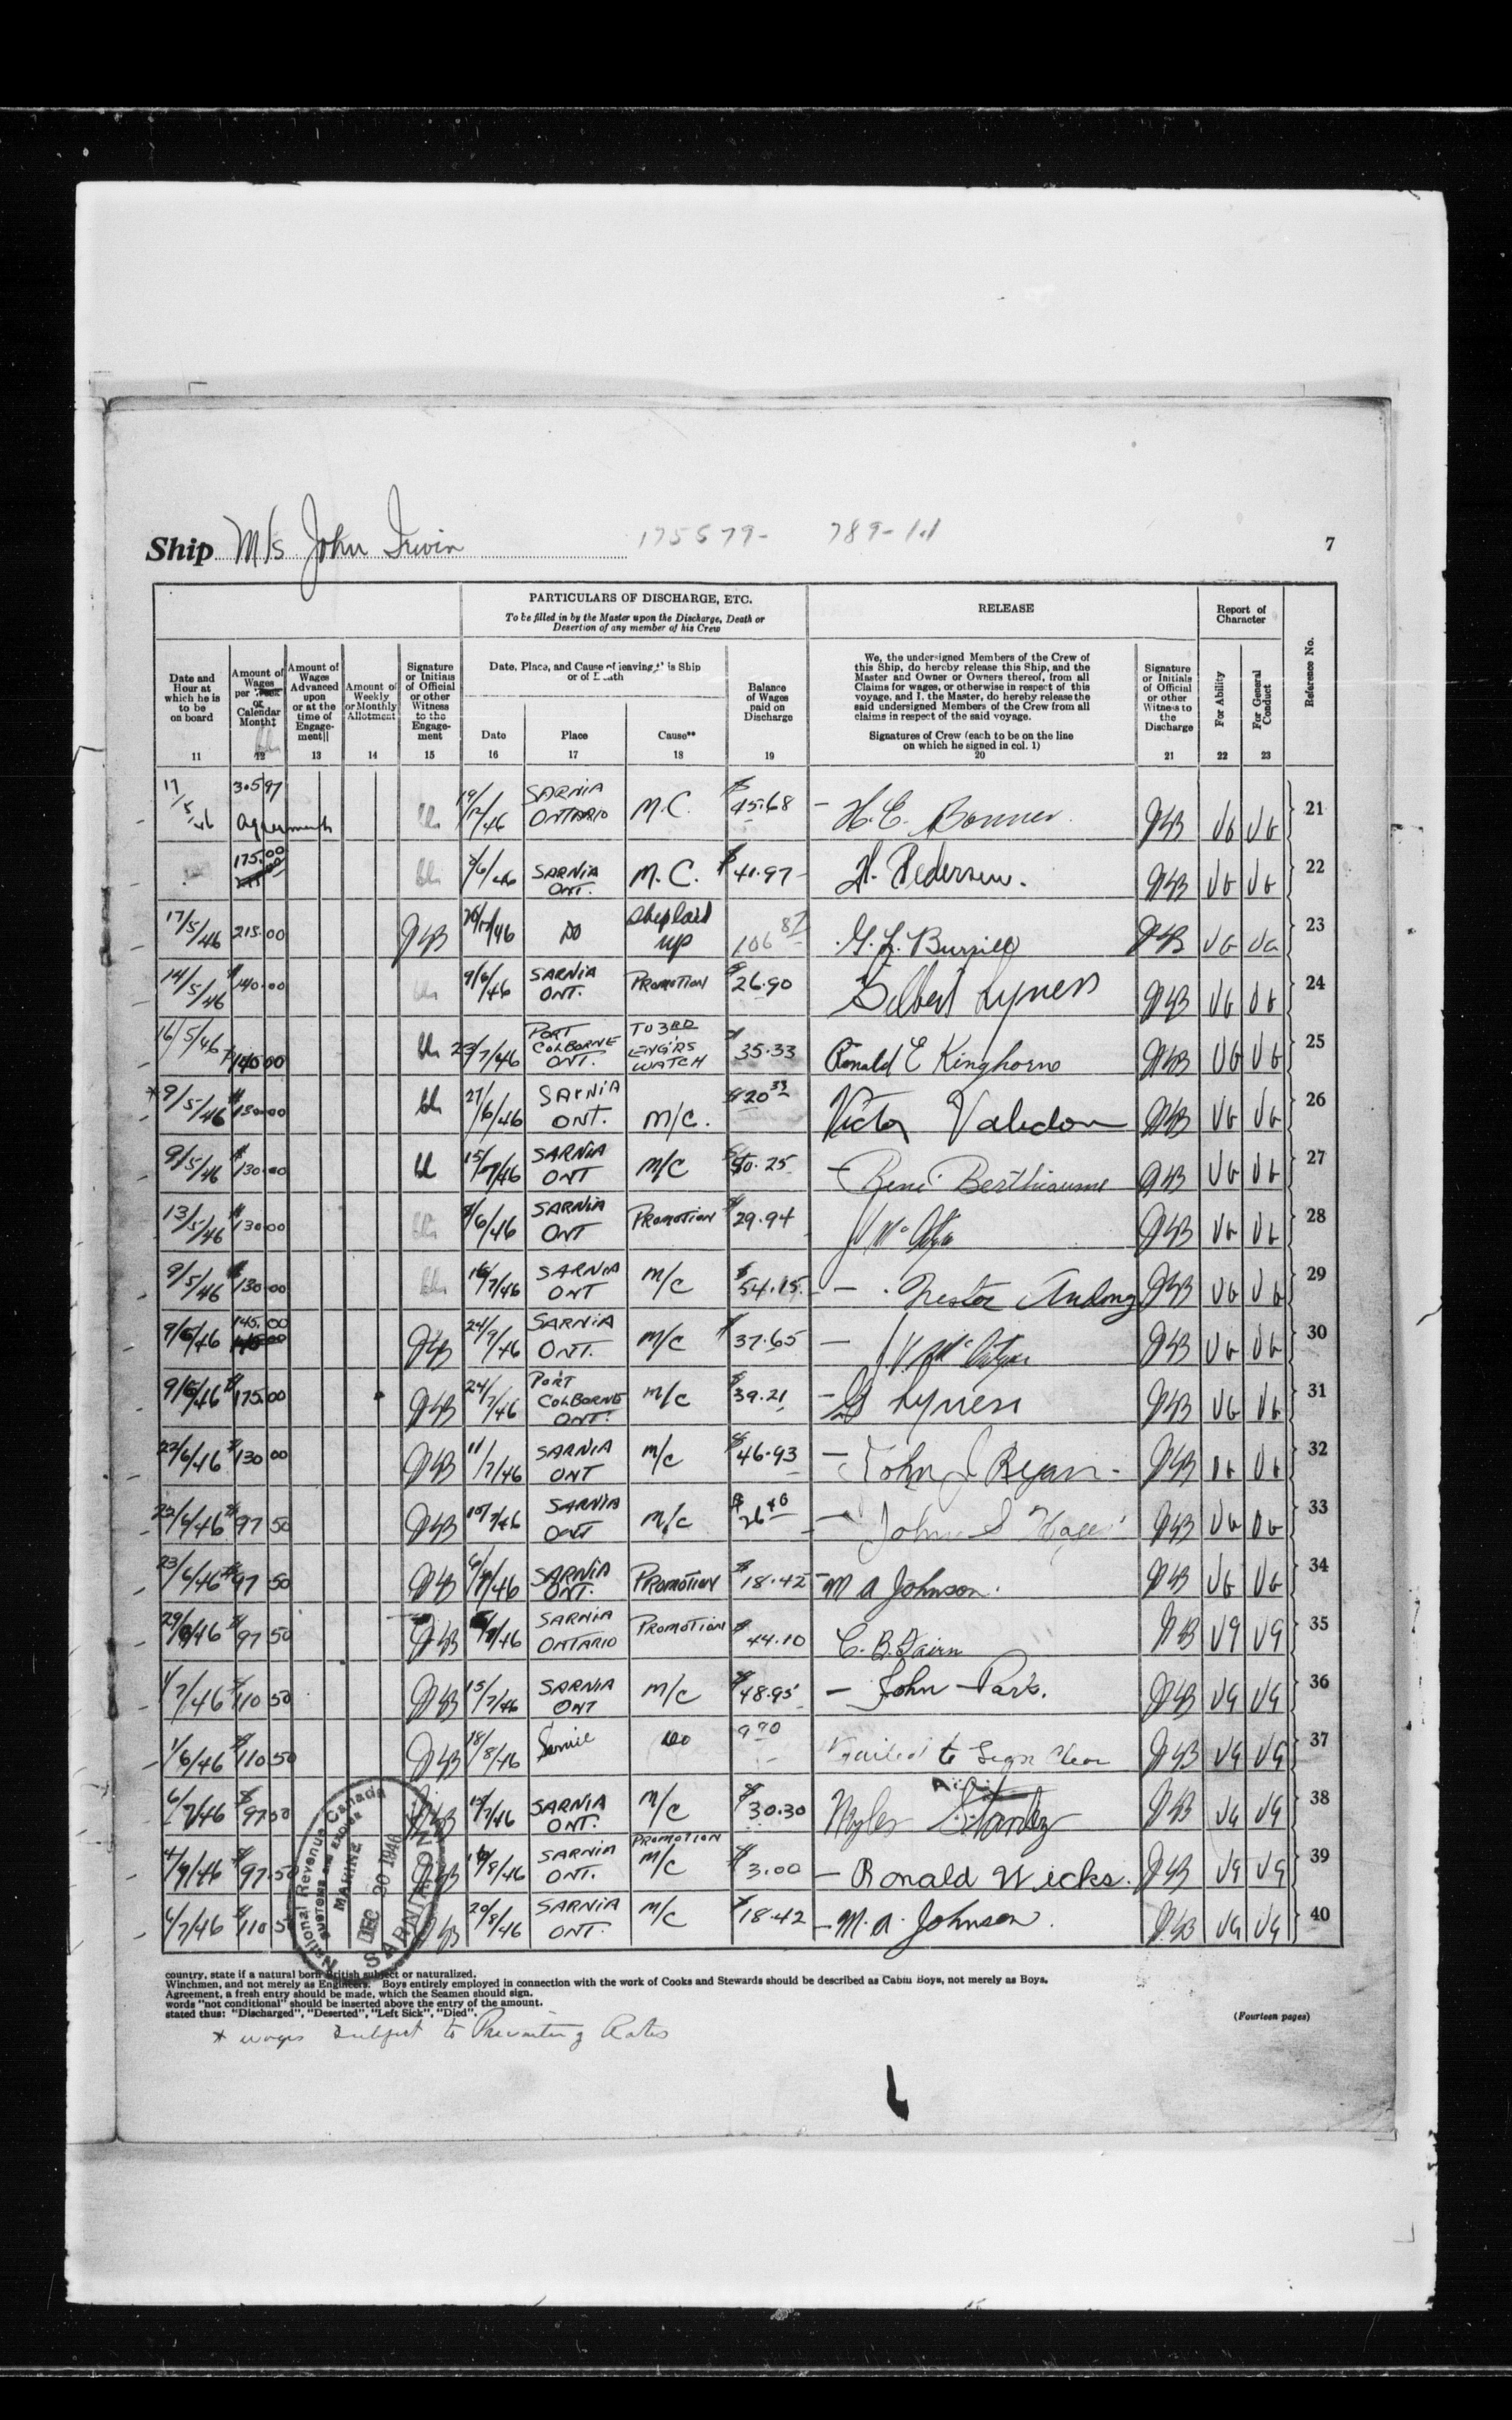 Ship M/s John Irwin 175579- 789-
7
PARTICULARS OF DISCHARGE, ETC.
To be filled in by the Master upon the Discharge, Death or
Desertion of any member of his Crew
RELEASE
Report of
Character
Reference No.
Date and
Hour at
which he is
to be
on board
11
Amount of
Wages
per
or
Calendar
Month‡
12
Amount of
Wages
Advanced
upon
or at the
time of
Engage-
ment||
13
Amount of
Weekly
or Monthly
Allotment
14
Signature
or Initials
of Official
or other
Witness
to the
Engage-
ment
15
Date, Place, and Cause of leaving this Ship
or of Death
Date
16
Place
17
Cause**
18
Balance
of Wages
paid on
Discharge
19
We, the undersigned Members of the Crew of
this Ship, do hereby release this Ship, and the
Master and Owner or Owners thereof, from all
Claims for wages, or otherwise in respect of this
voyage, and I, the Master, do hereby release the
said undersigned Members of the Crew from all
claims in respect of the said voyage.
Signatures of Crew (each to be on the line
on which he signed in col. 1)
20
Signature
or Initials
of Official
or other
Witness to
the
Discharge
21
For Ability
22
For General
Conduct
23
17/5/46 305 97 Agreements 19/12/46 SARNIA ONTARIO M.C. $45.68 - H.E. Bonner VG VG 21
175.00 /6/46 SARNIA ONT. M.C. $41.97 H. Pedersen. VG VG 22
17/5/46 215.00 /46 DO Ship laid up 106 87 G. L. Burrill VG VG 23
14/5/46 $140.00 9/6/46 SARNIA ONT. PROMOTION $26.90 Gilbert Lyness VG VG 24
16/5/46 140 00 23/7/46 PORT COLBORNE ONT. TO 3RD ENG'RS WATCH $35.33 Ronald E Kinghorne VG VG 25
*9/5/46 $130.00 27/6/46 SARNIA ONT. M/C. $20 33 Victor Valedon VG VG 26
9/5/46 $130.00 15/7/46 SARNIA ONT M/C $50.25 - Rene Berthiaume VG VG 27
13/5/46 $130.00 8/6/46 SARNIA ONT PROMOTION $29.94 VG VG 28
9/5/46 $130.00 16/7/46 SARNIA ONT M/C $54.15 - Nestor VG VG 29
9/6/46 145.00 24/9/46 SARNIA ONT. M/C $37.65 - VG VG 30
9/6/46 $175.00 24/7/46 PORT COLBORNE ONT. M/C $39.21 - G Lyness VG VG 31
22/6/46 $130 00 11/7/46 SARNIA ONT M/C $46.93 - John J Ryan - VG VG 32
23/6/46 $97 50 15/7/46 SARNIA ONT M/C $26 40 - John S VG VG 33
23/6/46 $97 50 6/7/46 SARNIA ONT. PROMOTION $18.42 - M A Johnson. VG VG 34
29/6/46 $97 50 /46 SARNIA ONTARIO PROMOTION $44.10 C. B. Fairn VG VG 35
1/7/46 $110 50 15/7/46 SARNIA ONT M/C $48.95 - John Park. VG VG 36
1/6/46 $110 50 18/8/46 Sarnia DO 9 70 Failed to Sign Clear VG VG 37
6/7/46 $97 50 15/7/46 SARNIA ONT. M/C $30.30 Myles Stanley VG VG 38
4/7/46 $97.50 /8/46 SARNIA ONT. PROMOTION M/C $3.00 - Ronald Wicks. VG VG 39
6/7/46 $110 5 20/8/46 SARNIA ONT. M/C $18.42 - M. A. Johnson. VG VG 40
National Revenue Canada
CUSTOMS AND EXCISE
MARINE
DEC 20 1946
SARNIA, ONT.
country, state if a natural born British subject or naturalized.
Winchmen, and not merely as Engineers. Boys entirely employed in connection with the work of Cooks and Stewards should be described as Cabin Boys, not merely as Boys.
Agreement, a fresh entry should be made, which the Seamen should sign.
words "not conditional" should be inserted above the entry of the amount.
stated thus: "Discharged", "Deserted", "Left Sick", "Died".
(Fourteen pages)
* wages subject to Prevailing Rates